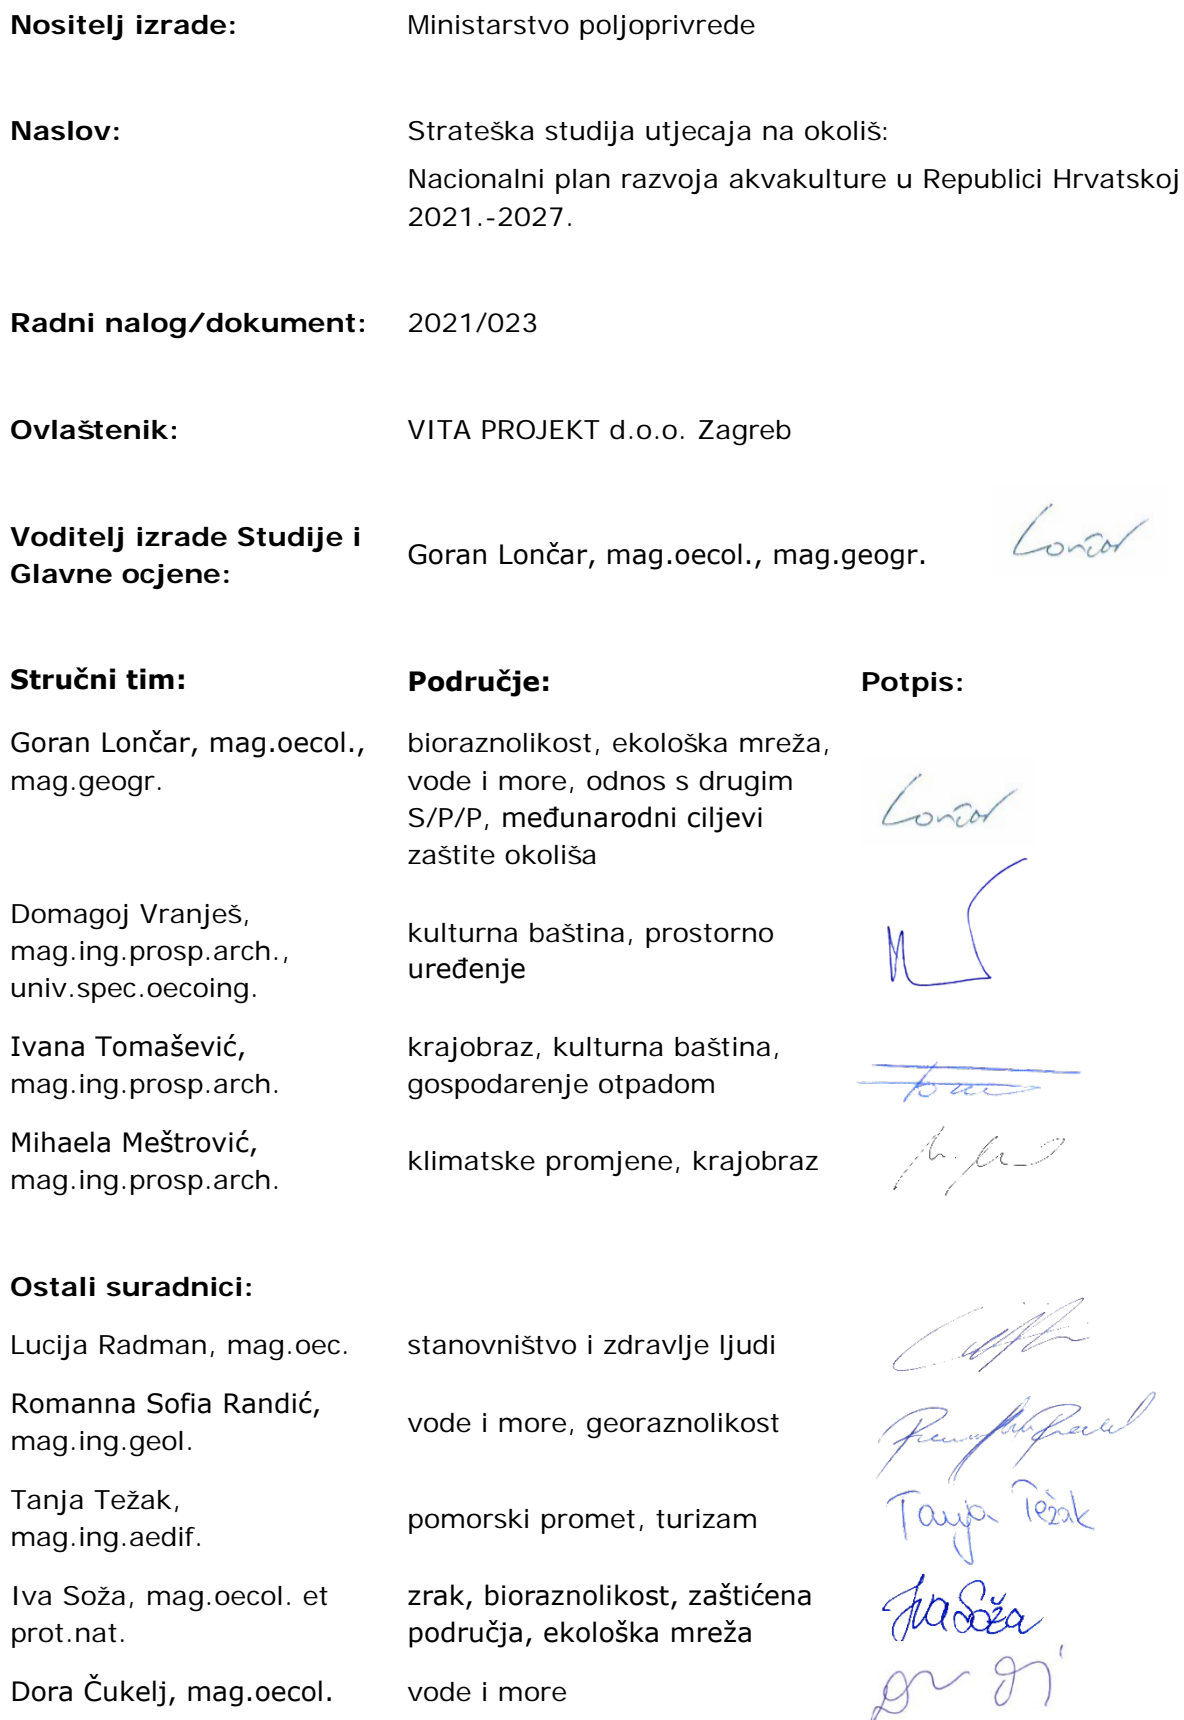 Nositelj izrade: Ministarstvo poljoprivrede
Naslov: Strateška studija utjecaja na okoliš:
Nacionalni plan razvoja akvakulture u Republici Hrvatskoj
2021.-2027.
Radni nalog/dokument: 2021/023
Ovlaštenik: VITA PROJEKT d.o.o. Zagreb
Voditelj izrade Studije i
Glavne ocjene:
Goran Lončar, mag.oecol., mag.geogr.
Lončar
Stručni tim: Područje: Potpis:
Goran Lončar, mag.oecol.,
mag.geogr.
bioraznolikost, ekološka mreža,
vode i more, odnos s drugim
S/P/P, međunarodni ciljevi
zaštite okoliša
Lončar
Domagoj Vranješ,
mag.ing.prosp.arch.,
univ.spec.oecoing.
kulturna baština, prostorno
uređenje
Ivana Tomašević,
mag.ing.prosp.arch.
krajobraz, kulturna baština,
gospodarenje otpadom
Mihaela Meštrović,
mag.ing.prosp.arch.
klimatske promjene, krajobraz
Ostali suradnici:
Lucija Radman, mag.oec. stanovništvo i zdravlje ljudi
Romanna Sofia Randić,
mag.ing.geol.
vode i more, georaznolikost
Tanja Težak,
mag.ing.aedif.
pomorski promet, turizam
Tanja Težak
Iva Soža, mag.oecol. et
prot.nat.
zrak, bioraznolikost, zaštićena
područja, ekološka mreža
Iva Soža
Dora Čukelj, mag.oecol. vode i more